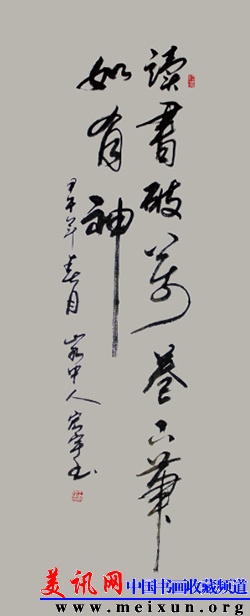 读书破万卷下笔
如有神
甲午年春月 山中人宏宇书
美讯网中国书画收藏频道
www.meixun.org